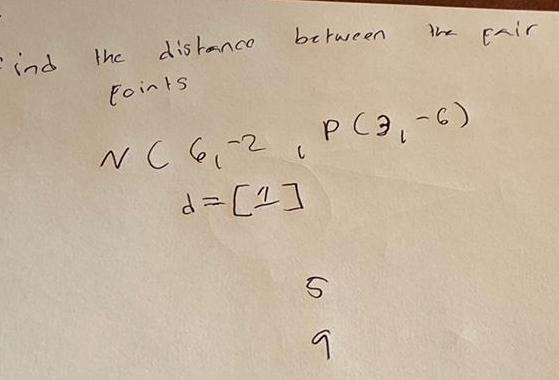 Find the distance between the pair
points
N ( 6, -2 , P (3, -6)
d = [1]
5
9